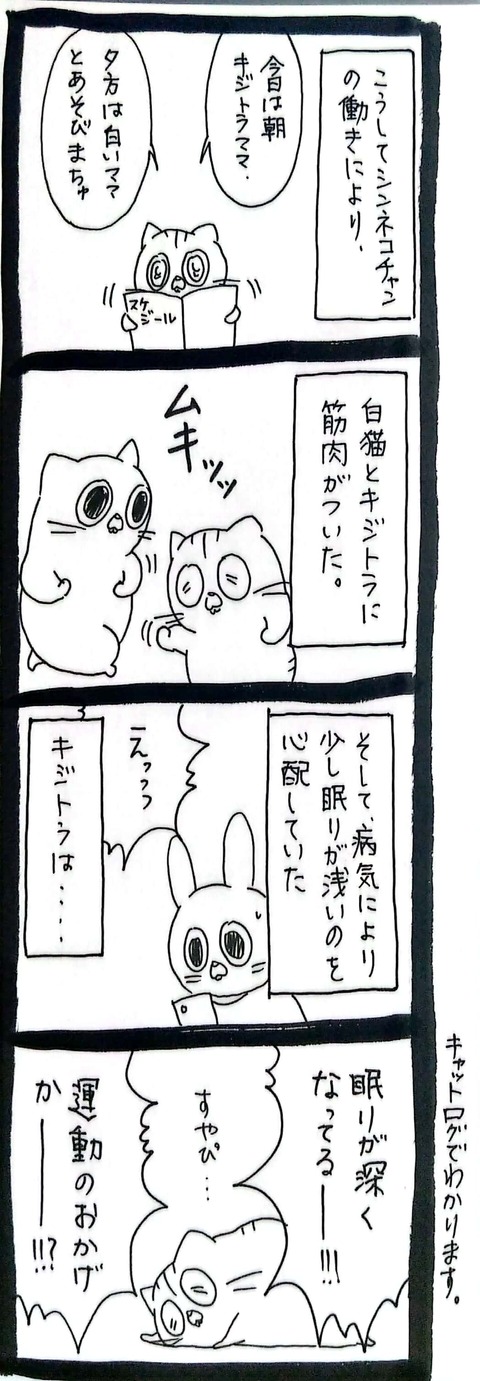 こうしてシンネコチャン
の働きにより、
今日は朝
キジトラママ、
夕方は白いママ
とあそびまちゅ
スケ
ジール
白猫とキジトラに
筋肉がついた。
ムキッッ
そして、病気により
少し眠りが浅いのを
心配していた
えっっっ
キジトラは・・・・
眠りが深く
なってるー!!!
すやぴ…
運動のおかげ
かー!!?
キャットログでわかります。